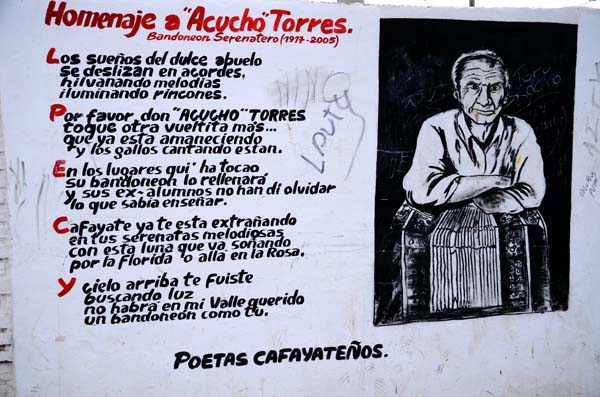 Homenaje a "Acucho" Torres.
Bandoneon Serenatero (1917-2005)
Los sueños del dulce abuelo
se deslizan en acordes,
hilvanando melodías
iluminando rincones.
Por favor, don "ACUCHO" TORRES
toque otra vueltita mas...
que ya esta amaneciendo
y los gallos cantando estan.
En los lugares qui' ha tocao,
su bandoneón lo rellenará
y sus ex-alumnos no han di olvidar
lo que sabía enseñar.
Cafayate ya te esta extrañando
en tus serenatas melodiosas
con esta luna que va soñando
por la Florida 'o alla en la Rosa.
y cielo arriba te Fuiste
buscando luz
no habrá en mi Valle querido
un bandoneón como tu.
POETAS CAFAYATEÑOS.